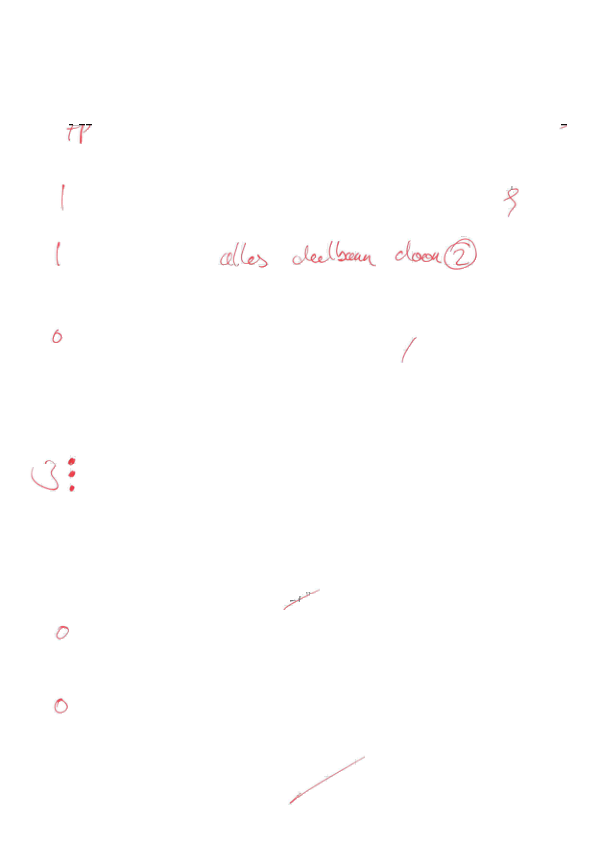 7p
1
1 alles deelbaar door 2
0
3
0
0